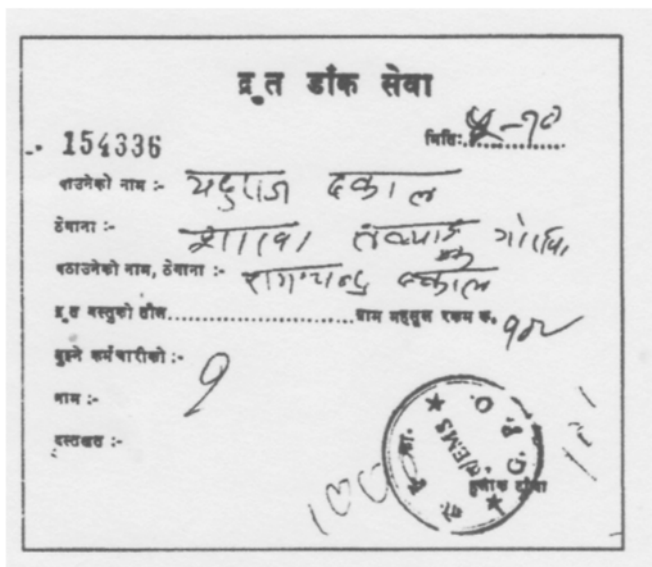 द्रुत डाँक सेवा
154336
मितिः ५-१०
पाउनेको नाम :- यदुराज ढकाल
ठेगाना :- शाखा तथ्यांक गोरखा
पठाउनेको नाम, ठेगाना :- रामचन्द्र ढकाल
द्रुत वस्तुको तौल....................ग्राम महसुल रकम रू.
बुझ्ने कर्मचारीको :-
नाम :-
दस्तखत :-
EMS
हुलाक टीका